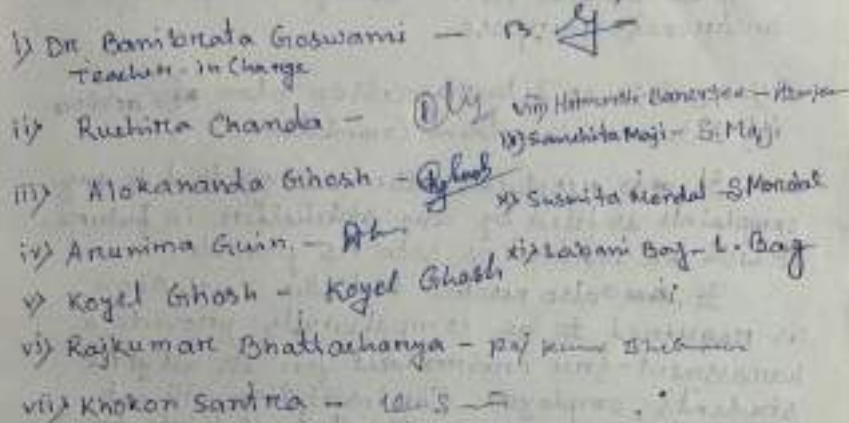 i) Dr Banibrata Goswami -
Teacher-in Charge
ii) Ruchira Chanda -
iii) Alokananda Ghosh - Aghosh
iv) Arunima Guin. -
v) Koyel Ghosh - Koyel Ghosh
vi) Rajkumar Bhattacharya - Raj Kumar
vii) Khokon Santra -
viii) Banerjee -
ix) Sanchita Maji - S. Maji
x) Susmita Mondal - S Mondal
xi) Labani Bag - L. Bag